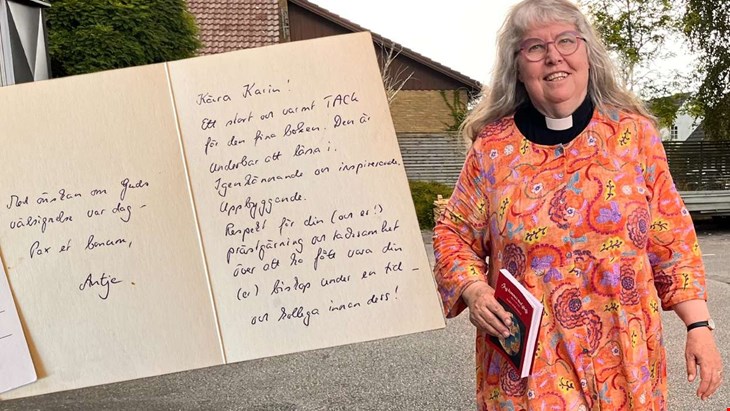 Med önskan om Guds
välsignelse var dag –
Pax et bonum,
Antje
Kära Karin!
Ett stort och varmt TACK
för den fina boken. Den är
underbar att läsa i.
Igenkännande och inspirerande.
Uppbyggande.
Respekt för din (och er!)
prästgärning och tacksamhet
över att ha fått vara din
(er) biskop under en tid –
och kollega innan dess!